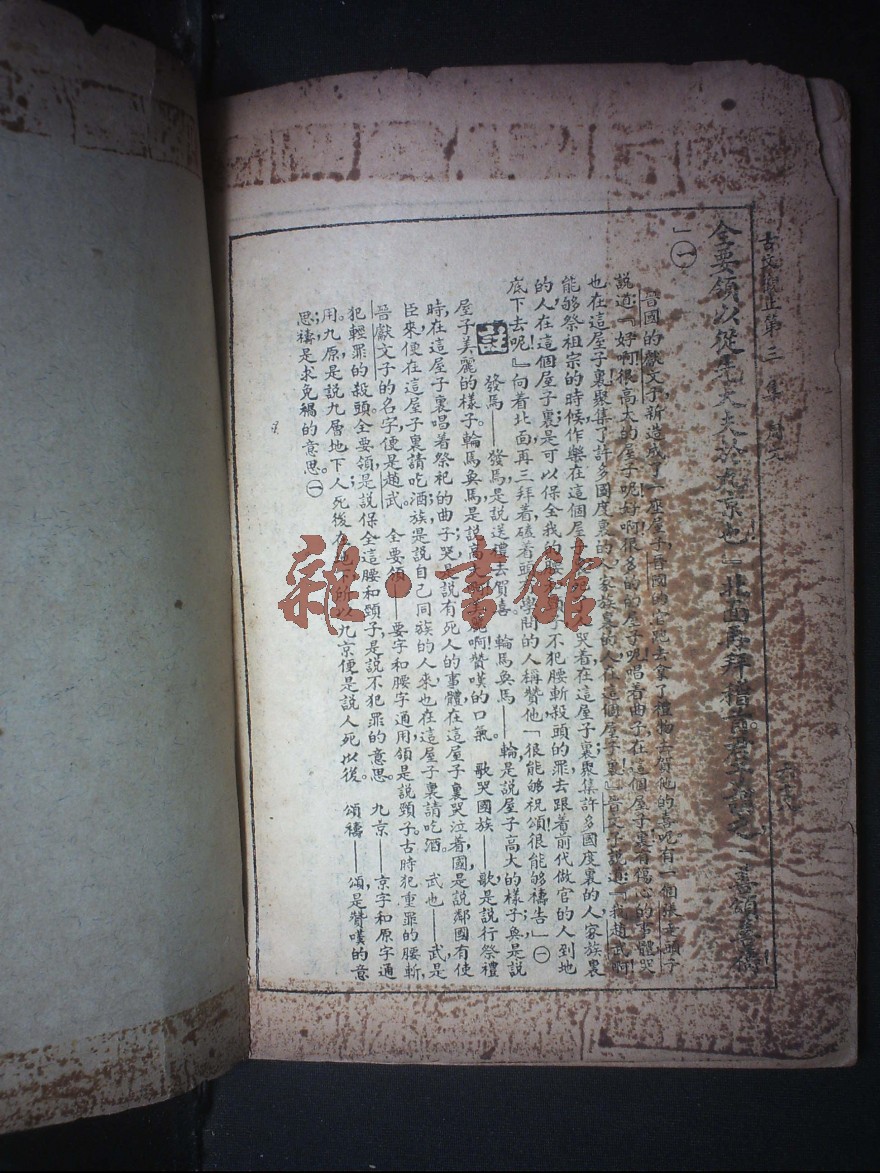 古文觀止第三集 周文
全要領以從先大夫於九京也』北面再拜稽首君子謂之善頌善禱
」㊀
晉國的獻文子新造成了一座屋子晉國的官員去拿了禮物去賀他的喜呢有一個張老頭子
說道『好啊很高大的屋子呢好啊很多的屋子呢唱着曲子在這個屋子裏有傷心的事體哭
也在這屋子裏聚集了許多國度裏的人家族裏的人在這個屋子裏』
能夠祭祖宗的時候作樂在這個屋 哭着在這屋子裏聚集許多國度裏的人家族裏
的人在這個屋子裏是可以保全我的腰 不犯腰斬殺頭的罪去跟着前代做官的人到地
底下去呢』向着北面再三拜着磕着頭 學問的人稱贊他「很能夠祝頌很能夠禱告」㊀
註 發馬——發馬是說送禮去賀喜 輪馬奐馬——輪是說屋子高大的樣子；奐是說
屋子美麗的樣子。輪馬奐馬是說高大 麗啊贊嘆的口氣 歌哭國族——歌是說行祭禮
時在這屋子裏唱着祭祀的曲子；哭是說有死人的事體在這屋子裏哭泣着國是說鄰國有使
臣來便在這屋子裏請吃酒；族是說自己同族的人來也在這屋子裏請吃酒。 武也——武是
晉獻文子的名字便是趙武。 全要領——要字和腰字通用領是說頸子。古時犯重罪的腰斬
犯輕罪的殺頭。全要領是說保全這腰和頸子是說不犯罪的意思。 九京——京字和原字通
用。九原是說九層地下人死後 地下所以九京便是說人死以後。 頌禱——頌是贊嘆的意
思；禱是求免禍的意思。㊀
雜·書館